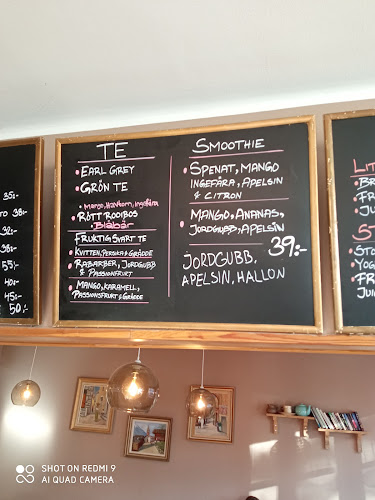 35:-
TO 38:-
32:-
38:-
55:-
40:-
45:-
E 50:-
TE
EARL GREY
GRÖN TE
MANGO, HAVTORN, INGEFÄRA
RÖTT ROOIBOS
BLÅBÄR
FRUKTIG SVART TE
KVITTEN, PERSIKA & GRÄDDE
RABARBER, JORDGUBB
& PASSIONSFRUKT
MANGO, KARAMELL,
PASSIONSFRUKT & GRÄDDE
SMOOTHIE
SPENAT, MANGO
INGEFÄRA, APELSIN
& CITRON
MANGO, ANANAS,
JORDGUBB, APELSIN
39:-
JORDGUBB,
APELSIN, HALLON
LIT
BR
FR
JUI
ST
STO
YOG
FR
JUIC
SHOT ON REDMI 9
AI QUAD CAMERA